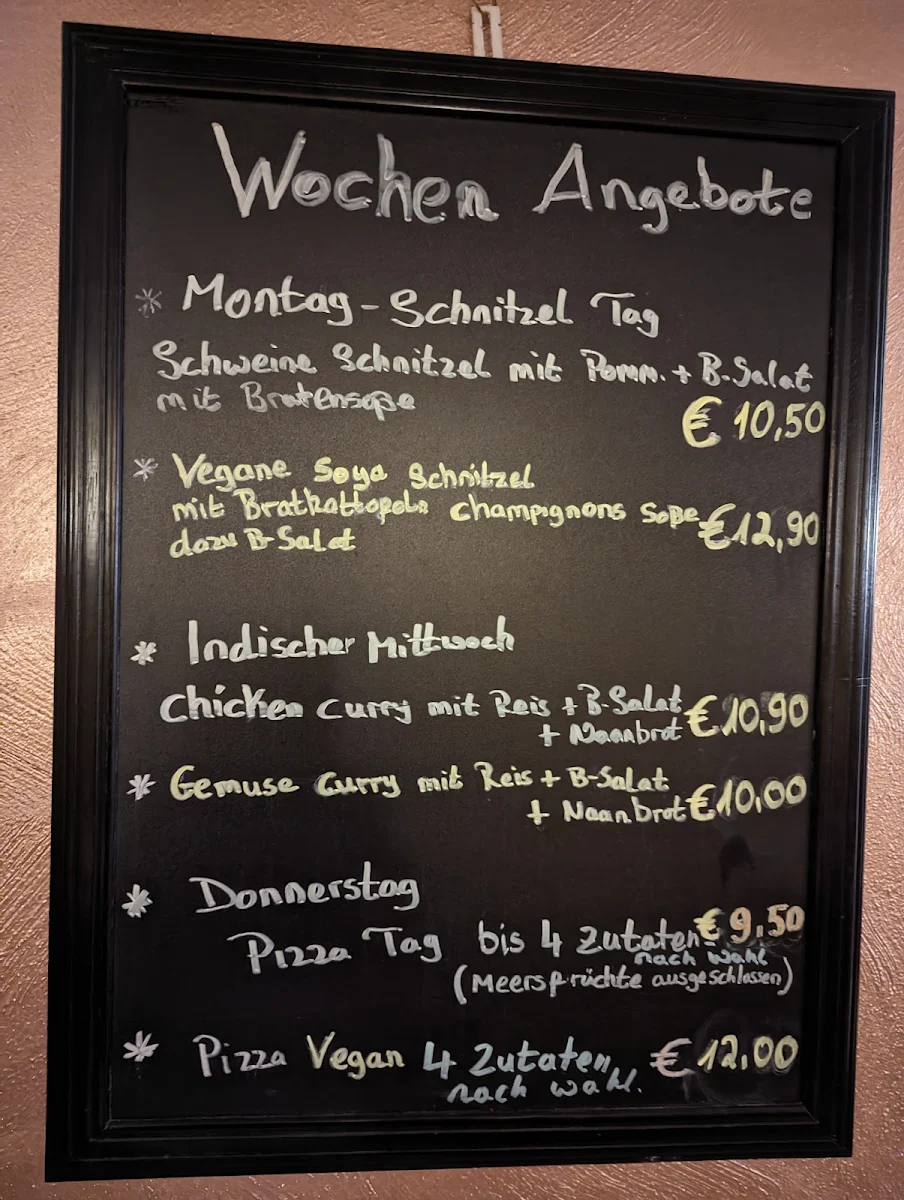 Wochen Angebote
* Montag - Schnitzel Tag
Schweine Schnitzel mit Pomm. + B.Salat
mit Bratensoße
€ 10,50
* Vegane Soya Schnitzel
mit Bratkattopeln Champignons Soße €12,90
dazu B-Salat
* Indischer Mittwoch
Chicken Curry mit Reis + B-Salat €10,90
+ Naanbrot
* Gemuse Curry mit Reis + B-Salat
+ Naanbrot €10,00
* Donnerstag
Pizza Tag bis 4 Zutaten € 9,50
nach wahl
(Meersfrüchte ausgeschlossen)
* Pizza Vegan 4 Zutaten € 12,00
nach wahl.